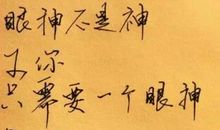 眼神不是神
你
只需要一个眼神